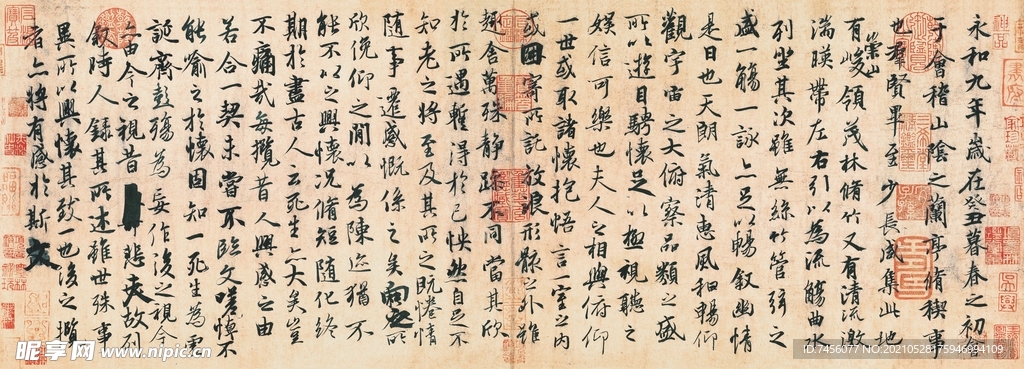 永和九年歲在癸丑暮春之初會
于會稽山陰之蘭亭脩稧事
也羣賢畢至少長咸集此地
有崇山峻領茂林脩竹又有清流激
湍暎帶左右引以為流觴曲水
列坐其次雖無絲竹管弦之
盛一觴一詠亦足以暢敘幽情
是日也天朗氣清惠風和暢仰
觀宇宙之大俯察品類之盛
所以遊目騁懷足以極視聽之
娛信可樂也夫人之相與俯仰
一世或取諸懷抱悟言一室之內
或因寄所託放浪形骸之外雖
趣舍萬殊靜躁不同當其欣
於所遇暫得於己怏然自足不
知老之將至及其所之既惓情
隨事遷感慨係之矣向之所
欣俛仰之閒以為陳迹猶不
能不以之興懷況脩短隨化終
期於盡古人云死生亦大矣豈
不痛哉每攬昔人興感之由
若合一契未嘗不臨文嗟悼不
能喻之於懷固知一死生為虛
誕齊彭殤為妄作後之視今
亦由今之視昔悲夫故列
敘時人錄其所述雖世殊事
異所以興懷其致一也後之攬
者亦將有感於斯文
昵享网 www.nipic.cn
ID:7456077 NO:20210528175946994109